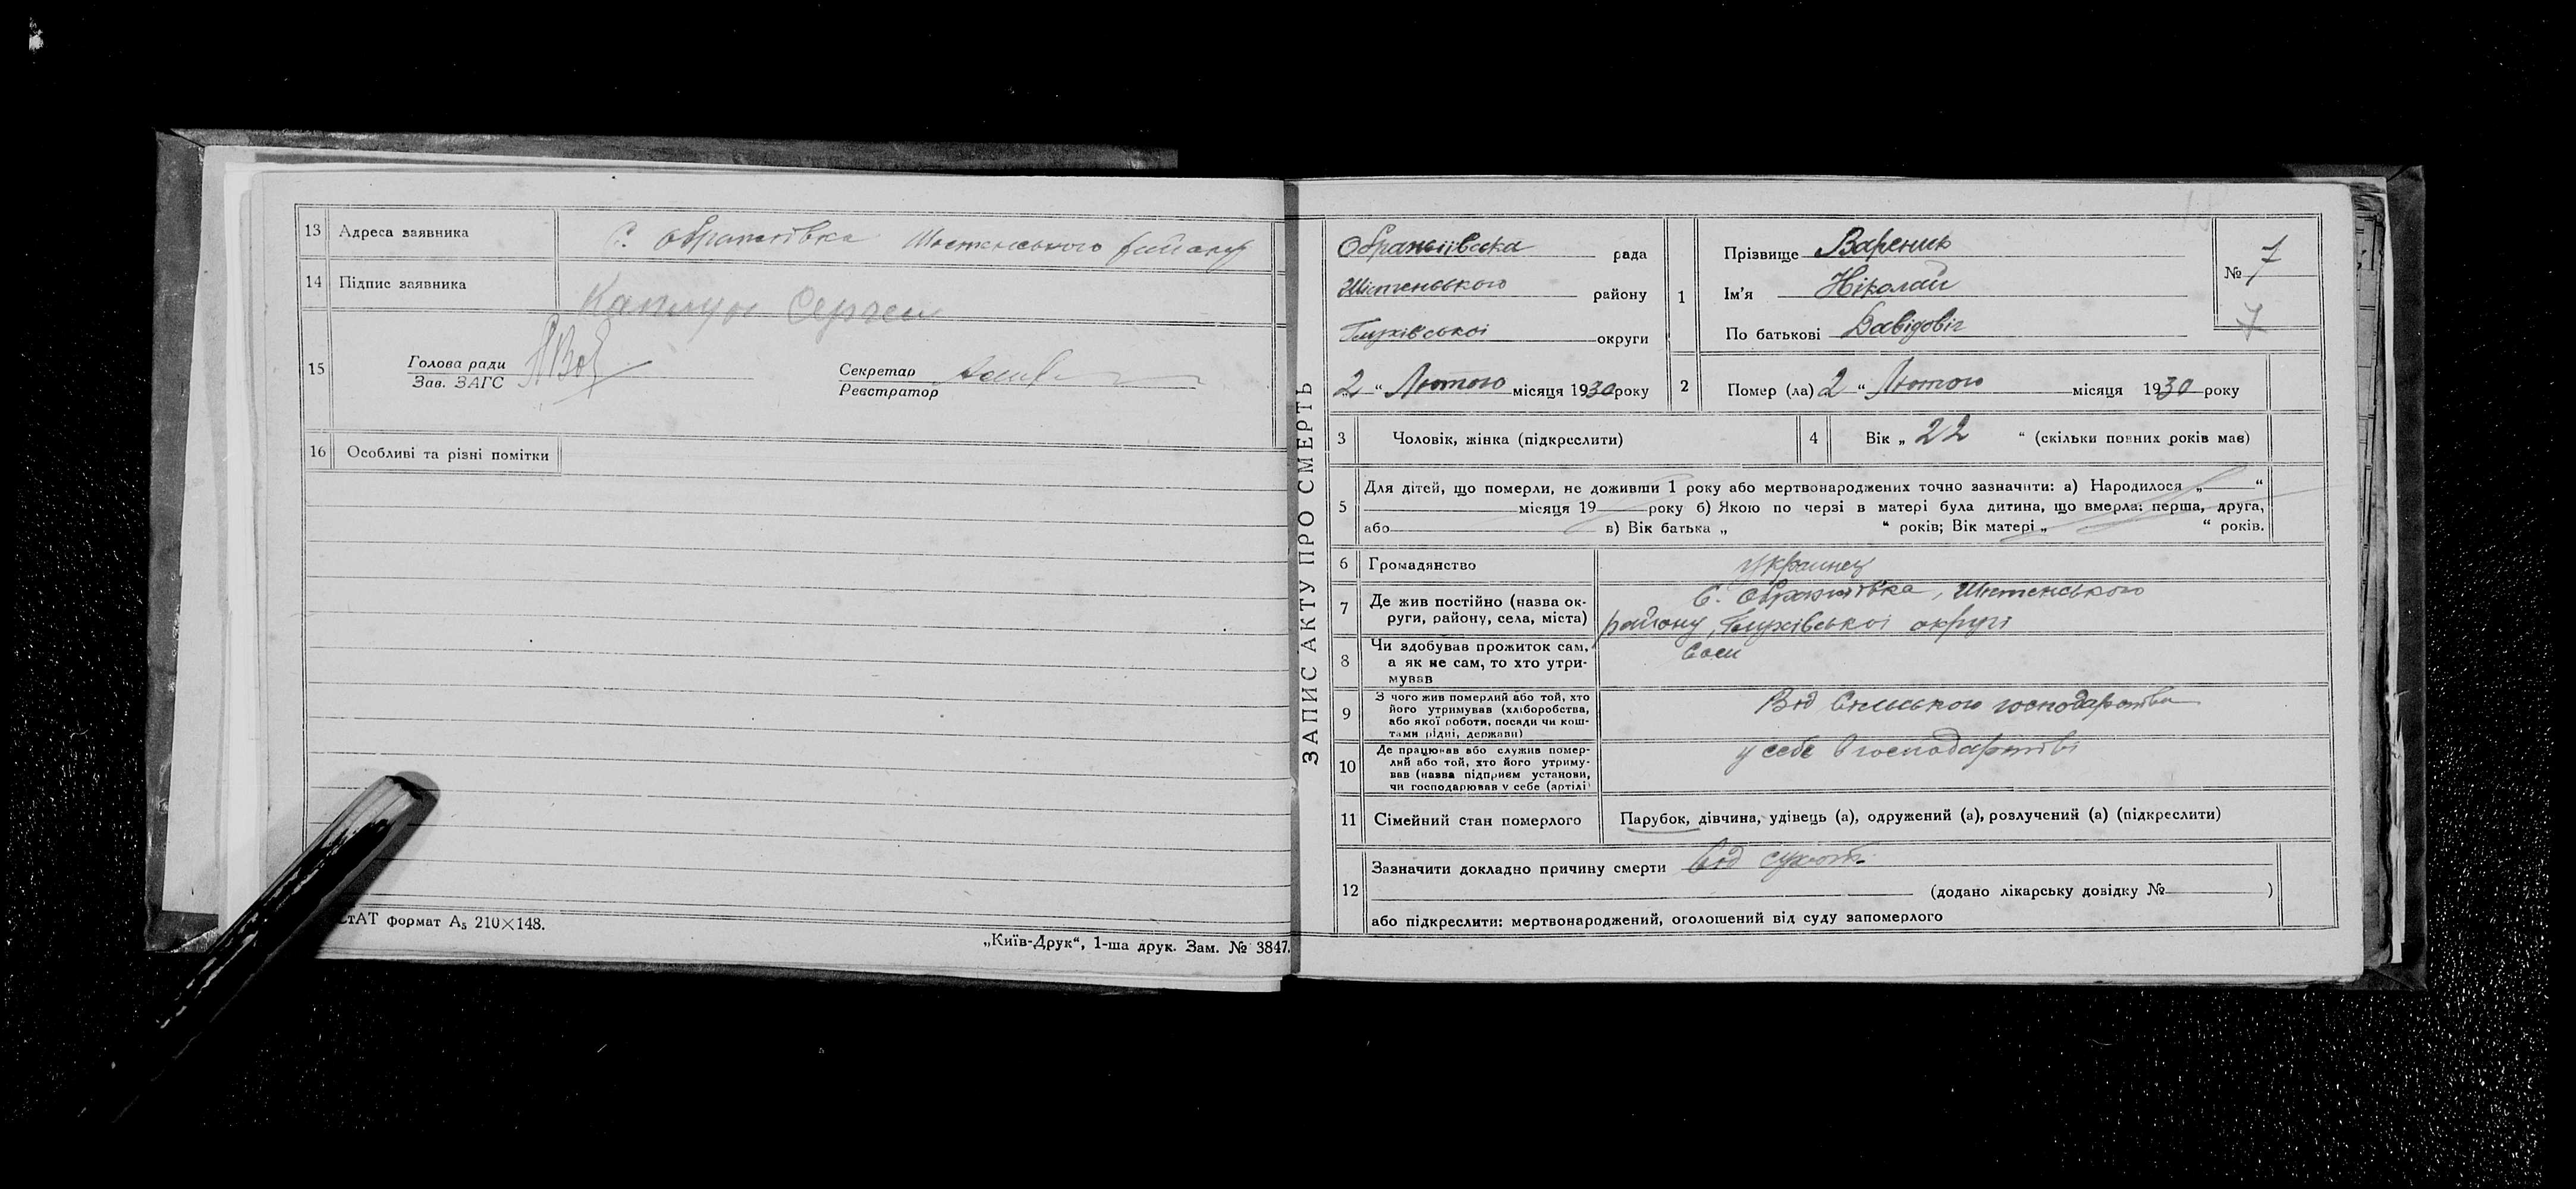 13 Адреса заявника С. Обратіївка Шостенського району
14 Підпис заявника Каптур Сергей
15 Голова ради
Зав. ЗАГС
Секретар
Реєстратор
16 Особливі та різні помітки
СтАТ формат А₅ 210×148.
„Київ-Друк“, 1-ша друк. Зам. № 3847.
ЗАПИС АКТУ ПРО СМЕРТЬ
рада
Шостенського району
Глухівської округи
„2“ Лютого місяця 1930 року
1 Прізвище Вареник
Ім'я Ніколай
По батькові Давідовіч
№ 7
7
2 Помер (ла) 2 “ Лютого місяця 1930 року
3 Чоловік, жінка (підкреслити)
4 Вік „ 22 “ (скільки повних років має)
5 Для дітей, що померли, не доживши 1 року або мертвонароджених точно зазначити: а) Народилося „ “
місяця 19 року б) Якою по черзі в матері була дитина, що вмерла: перша, друга,
або в) Вік батька „ “ років; Вік матері „ “ років.
6 Громадянство украинец
7 Де жив постійно (назва ок-
руги, району, села, міста)
С. Шостенського
району, Глухівської округі
8 Чи здобував прожиток сам,
а як не сам, то хто утри-
мував
Сам
9 З чого жив померлий або той, хто
його утримував (хліборобства,
або якої роботи, посади чи кош-
тами рідні, держави)
Від Сільського господарства
10 Де працював або служив помер-
лий або той, хто його утриму-
вав (назва підприєм установи,
чи господарював у себе (артілі)
у себе в господарстві
11 Сімейний стан померлого Парубок, дівчина, удівець (а), одружений (а), розлучений (а) (підкреслити)
12 Зазначити докладно причину смерти від сухот
(додано лікарську довідку № )
або підкреслити: мертвонароджений, оголошений від суду запомерлого